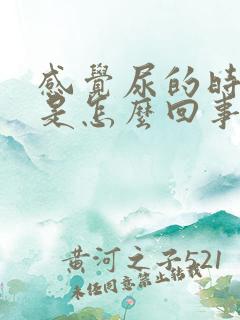 感覺尿的時
是怎麼回事
黄河之子521
未经同意禁止转载